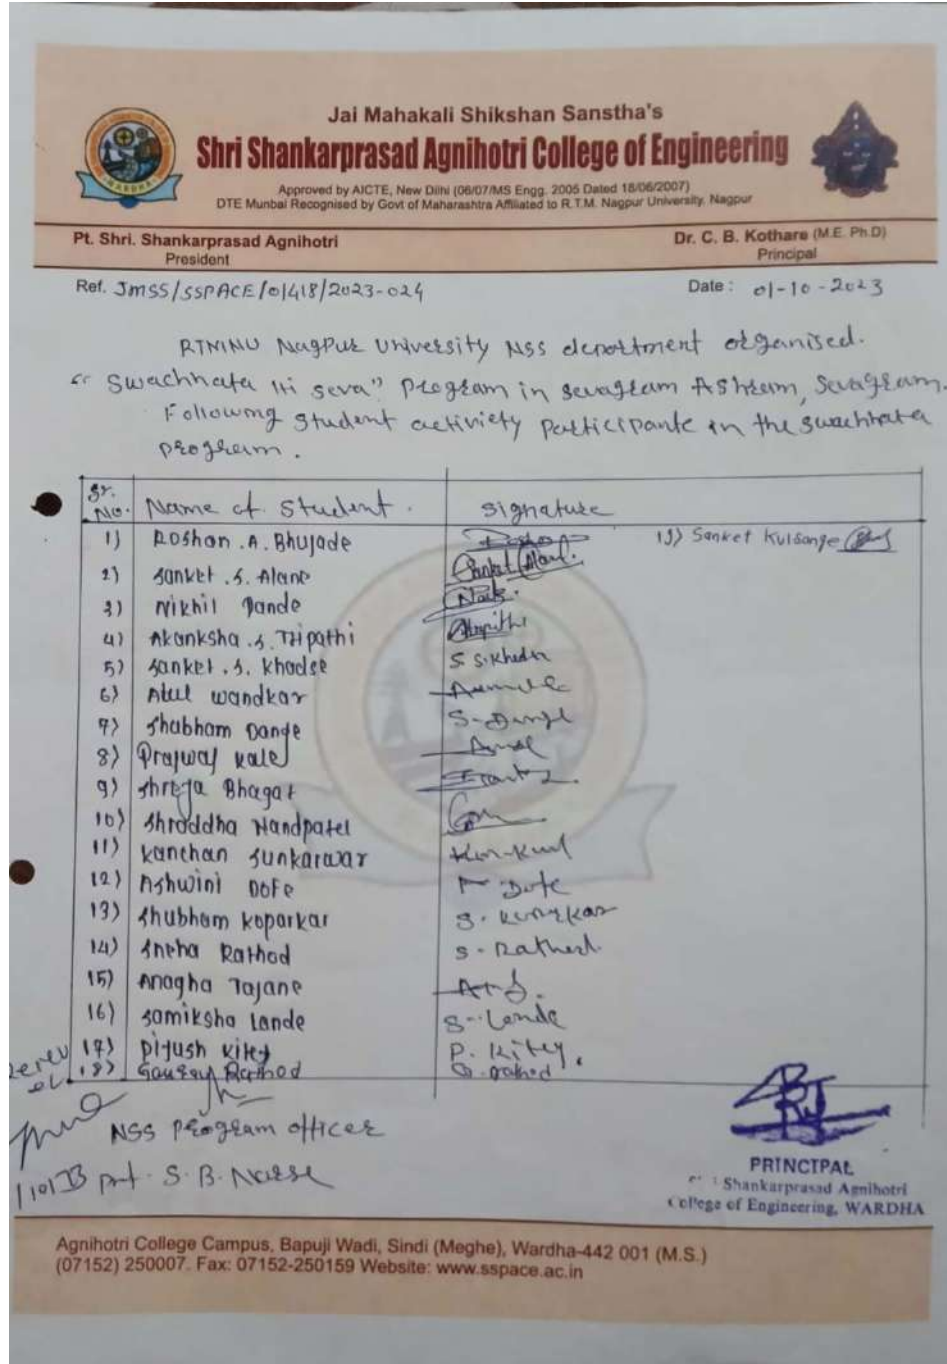 Jai Mahakali Shikshan Sanstha's
Shri Shankarprasad Agnihotri College of Engineering
WARDHA
Approved by AICTE, New Dilhi (06/07/MS Engg. 2005 Dated 18/06/2007)
DTE Munbai Recognised by Govt of Maharashtra Affiliated to R.T.M. Nagpur University, Nagpur
Pt. Shri. Shankarprasad Agnihotri
President
Dr. C. B. Kothare (M.E. Ph.D)
Principal
Ref. JMSS/SSPACE/01418/2023-024
Date : 01-10-2023
Nagpur University NSS organised.
"Swachhata Hi seva" Program in sevagram Ashram, Sevagram.
Following student activiety participante in the swachhata
program.
Sr. No. Name of Student. Signature
1) Roshan .A. Bhujade
19) Sanket Kulsange
2) Sanket .S. Alane
3) Nikhil Dande
4) Akanksha .S. Tripathi
5) Sanket .S. Khodse S S. Khodse
6) Atul Wandkar
7) Shubham Dange S-Dange
8) Prajwal Kale
9) Shreya Bhagat
10) Shroddha Handpatel
11) Kanchan Sunkarwar
12) Ashwini Dofe
13) Shubham Koparkar
14) Sneha Rathod S-Rathod
15) Anagha Tajane
16) Samiksha Lande S-Lande
17) Pijush Kitey P. Kitey.
18) Gourav Rathod G-Rathod
NSS Program officer
Prof. S. B.
PRINCIPAL
Shankarprasad Agnihotri
College of Engineering, WARDHA
Agnihotri College Campus, Bapuji Wadi, Sindi (Meghe), Wardha-442 001 (M.S.)
(07152) 250007. Fax: 07152-250159 Website: www.sspace.ac.in